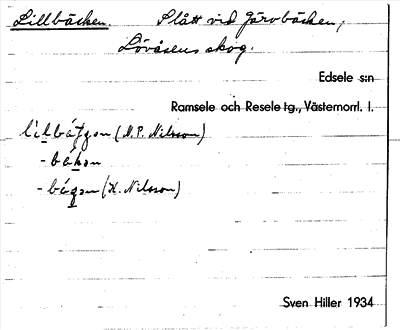 Lillbäcken. Slått vid Järvbäcken,
Lövåsens skog.
Edsele s:n
Ramsele och Resele tg., Västernorrl. l.
(N.P. Nilsson)
(K. Nilsson)
Sven Hiller 1934